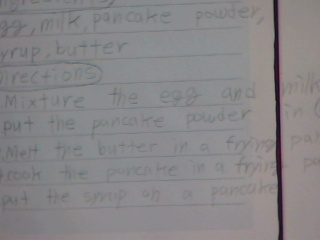 gg, milk, pancake powder,
yrup, butter
irections
Mixture the egg and milk
put the pancake powder in
Melt the butter in a frying pan
cook the pancake in a frying
put the syrup on a pancake